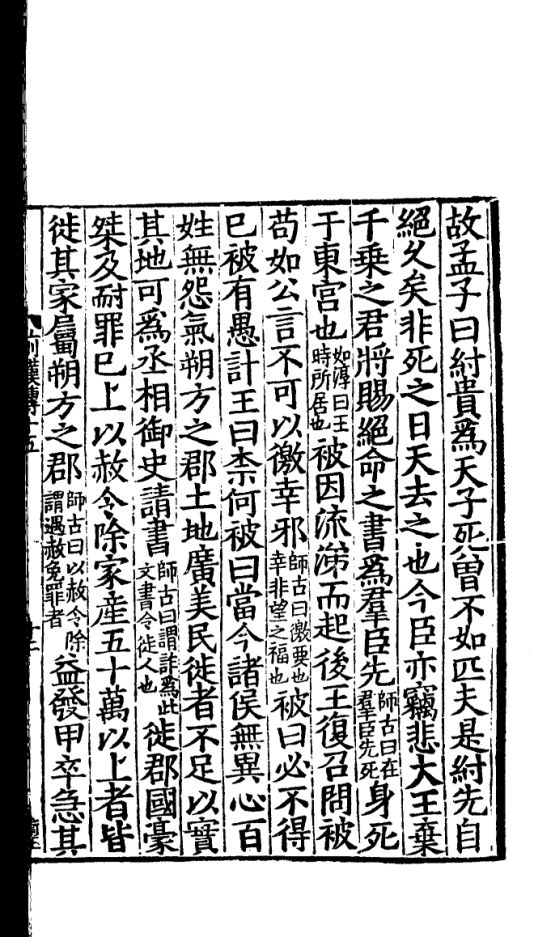 故孟子曰紂貴爲天子死曾不如匹夫是紂先自
絕久矣非死之日天去之也今臣亦竊悲大王棄
千乗之君將賜絕命之書爲羣臣先師古曰在羣臣先死身死
于東宮也如淳曰王時所居也被因流涕而起後王復召問被
苟如公言不可以徼幸邪師古曰徼要也幸非望之福也被曰必不得
巳被有愚計王曰柰何被曰當今諸侯無異心百
姓無怨氣朔方之郡土地廣美民徙者不足以實
其地可爲丞相御史請書師古曰謂詐爲此文書令徙人也徙郡國豪
桀及耐罪巳上以赦令除家産五十萬以上者皆
徙其家屬朔方之郡師古曰以赦令除謂遇赦免罪者益發甲卒急其
前漢傳十五